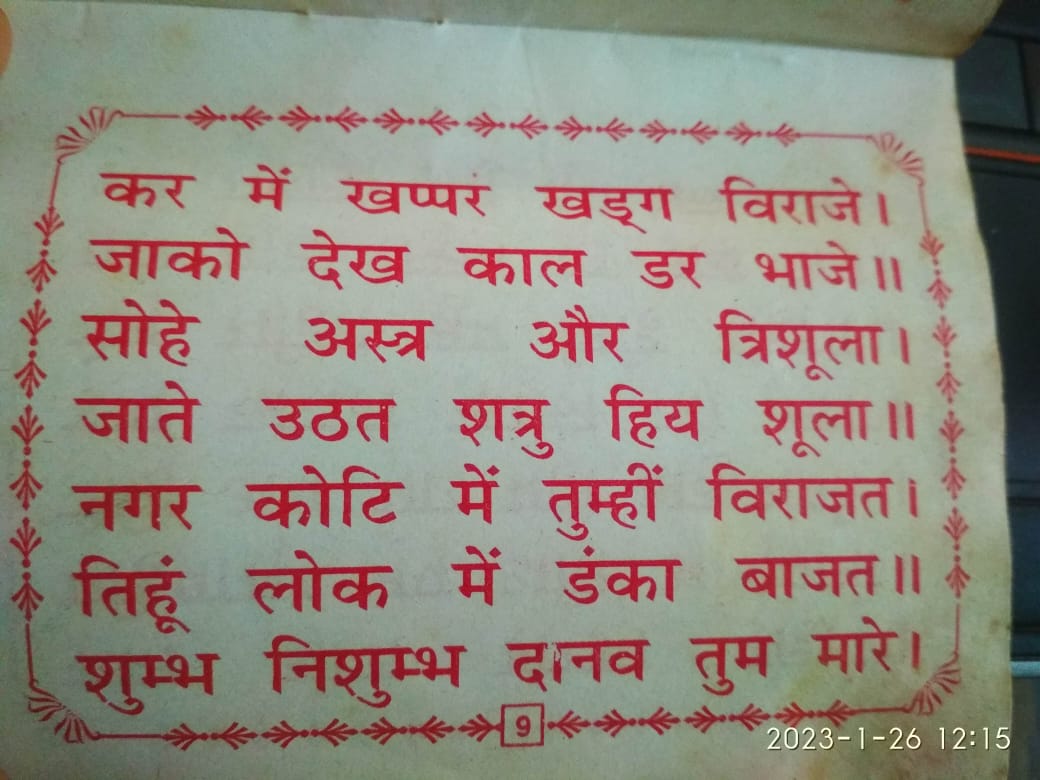 कर में खप्पर खड्ग विराजे।
जाको देख काल डर भाजे॥
सोहे अस्त्र और त्रिशूला।
जाते उठत शत्रु हिय शूला॥
नगर कोटि में तुम्हीं विराजत।
तिहूं लोक में डंका बाजत॥
शुम्भ निशुम्भ दानव तुम मारे।
9
2023-1-26 12:15